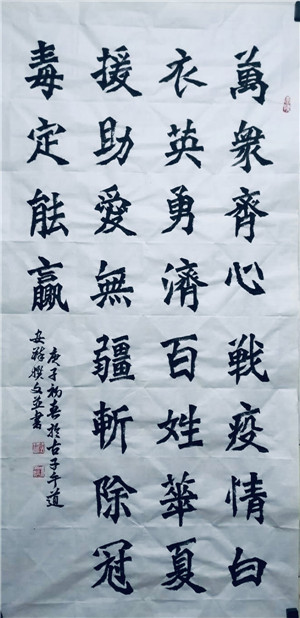 萬衆齊心戰疫情白
衣英勇濟百姓華夏
援助愛無疆斬除冠
毒定能贏
庚子初春於古子午道
安Leave撰文並書